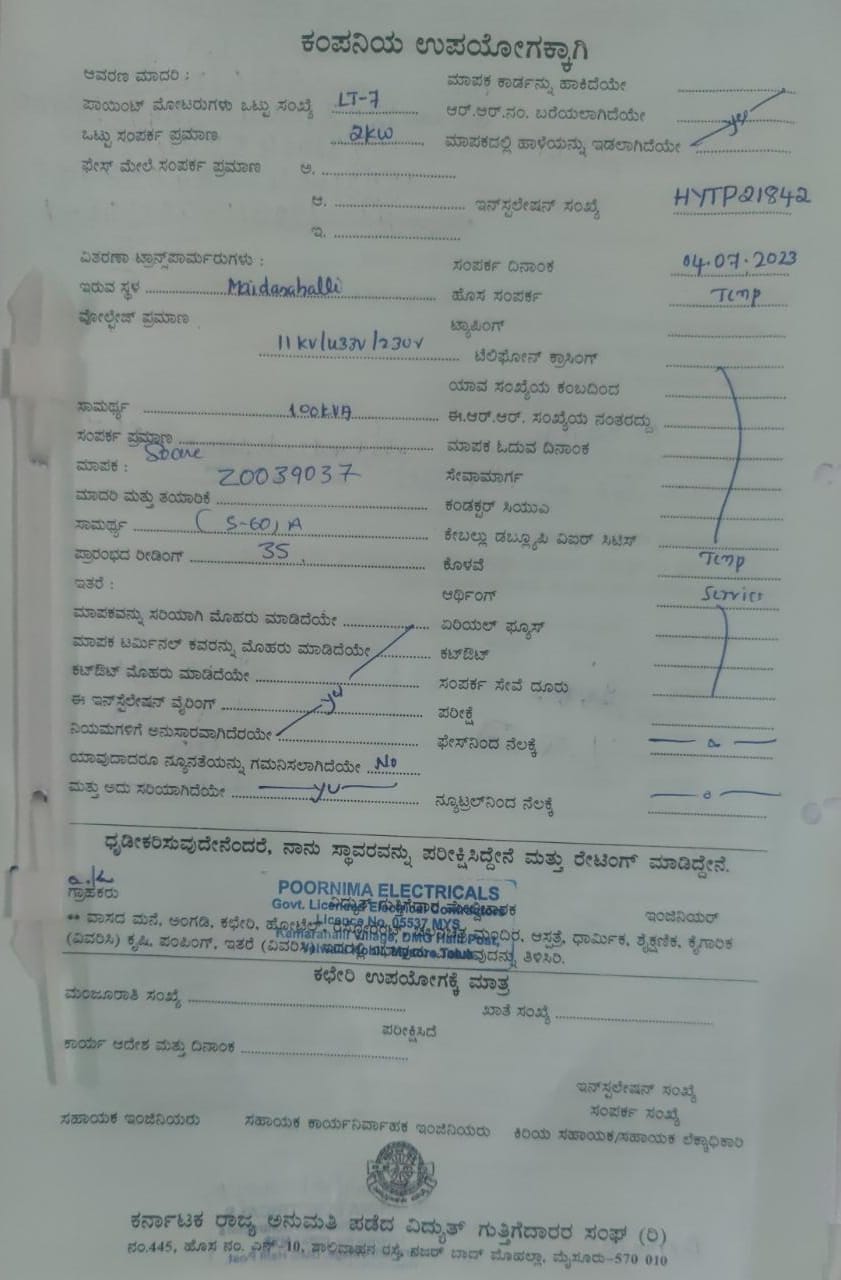 ಕಂಪನಿಯ ಉಪಯೋಗಕ್ಕಾಗಿ
ಆವರಣ ಮಾದರಿ : ಮಾಪಕ ಕಾರ್ಡನ್ನು ಹಾಕಿದೆಯೇ
ಪಾಯಿಂಟ್ ಮೋಟರುಗಳು ಒಟ್ಟು ಸಂಖ್ಯೆ LT-7 ಆರ್.ಆರ್.ನಂ. ಬರೆಯಲಾಗಿದೆಯೇ
ಒಟ್ಟು ಸಂಪರ್ಕ ಪ್ರಮಾಣ 2kw ಮಾಪಕದಲ್ಲಿ ಹಾಳೆಯನ್ನು ಇಡಲಾಗಿದೆಯೇ
ಫೇಸ್ ಮೇಲೆ ಸಂಪರ್ಕ ಪ್ರಮಾಣ ಅ.
ಆ. ಇನ್‌ಸ್ಟಲೇಷನ್ ಸಂಖ್ಯೆ HYTP21842
ಇ.
ವಿತರಣಾ ಟ್ರಾನ್ಸ್‌ಪಾರ್ಮರುಗಳು : ಸಂಪರ್ಕ ದಿನಾಂಕ 04.07.2023
ಇರುವ ಸ್ಥಳ Maidanahalli ಹೊಸ ಸಂಪರ್ಕ Temp
ವೋಲ್ಟೇಜ್ ಪ್ರಮಾಣ ಟ್ಯಾಪಿಂಗ್
11KV/433V/230V ಟೆಲಿಫೋನ್ ಕ್ರಾಸಿಂಗ್
ಯಾವ ಸಂಖ್ಯೆಯ ಕಂಬದಿಂದ
ಸಾಮರ್ಥ್ಯ 100kVA ಈ.ಆರ್.ಆರ್. ಸಂಖ್ಯೆಯ ನಂತರದ್ದು
ಸಂಪರ್ಕ ಪ್ರಮಾಣ ಮಾಪಕ ಓದುವ ದಿನಾಂಕ
ಮಾಪಕ : 20039037 ಸೇವಾಮಾರ್ಗ
ಮಾದರಿ ಮತ್ತು ತಯಾರಿಕೆ ಕಂಡಕ್ಟರ್ ಸಿಯುಎ
ಸಾಮರ್ಥ್ಯ (5-60) A ಕೇಬಲ್ಲು ಡಬ್ಲ್ಯೂಪಿ ವಿಐರ್ ಸಿಟಿಸ್
ಪ್ರಾರಂಭದ ರೀಡಿಂಗ್ 35 ಕೊಳವೆ Temp
ಇತರೆ : ಆರ್ಥಿಂಗ್ Service
ಮಾಪಕವನ್ನು ಸರಿಯಾಗಿ ಮೊಹರು ಮಾಡಿದೆಯೇ ಏರಿಯಲ್ ಫ್ಯೂಸ್
ಮಾಪಕ ಟರ್ಮಿನಲ್ ಕವರನ್ನು ಮೊಹರು ಮಾಡಿದೆಯೇ ಕಟ್‌ಔಟ್
ಕಟ್‌ಔಟ್ ಮೊಹರು ಮಾಡಿದೆಯೇ ಸಂಪರ್ಕ ಸೇವೆ ದೂರು
ಈ ಇನ್‌ಸ್ಟಲೇಷನ್ ವೈರಿಂಗ್ ಪರೀಕ್ಷೆ
ನಿಯಮಗಳಿಗೆ ಅನುಸಾರವಾಗಿದೆರಯೇ ಫೇಸ್‌ನಿಂದ ನೆಲಕ್ಕೆ
ಯಾವುದಾದರೂ ನ್ಯೂನತೆಯನ್ನು ಗಮನಿಸಲಾಗಿದೆಯೇ No
ಮತ್ತು ಅದು ಸರಿಯಾಗಿದೆಯೇ ನ್ಯೂಟ್ರಲ್‌ನಿಂದ ನೆಲಕ್ಕೆ
ಧೃಡೀಕರಿಸುವುದೇನೆಂದರೆ, ನಾನು ಸ್ಥಾವರವನ್ನು ಪರೀಕ್ಷಿಸಿದ್ದೇನೆ ಮತ್ತು ರೇಟಿಂಗ್ ಮಾಡಿದ್ದೇನೆ.
POORNIMA ELECTRICALS
ಗ್ರಾಹಕರು ವಿದ್ಯುತ್ ಗುತ್ತಿಗೆದಾರ ಇಂಜಿನಿಯರ್
Govt. Licensed Electrical Contractors
Licence No. 05537 MYS
** ವಾಸದ ಮನೆ, ಅಂಗಡಿ, ಕಛೇರಿ, ಹೋಟೆಲ್, ಮಂದಿರ, ಆಸ್ಪತ್ರೆ, ಧಾರ್ಮಿಕ, ಶೈಕ್ಷಣಿಕ, ಕೈಗಾರಿಕ
(ವಿವರಿಸಿ) ಕೃಷಿ, ಪಂಪಿಂಗ್, ಇತರೆ (ವಿವರಿಸಿ) ತಿಳಿಸಿರಿ.
ಕಛೇರಿ ಉಪಯೋಗಕ್ಕೆ ಮಾತ್ರ
ಮಂಜೂರಾತಿ ಸಂಖ್ಯೆ ಖಾತೆ ಸಂಖ್ಯೆ
ಪರೀಕ್ಷಿಸಿದೆ
ಕಾರ್ಯ ಆದೇಶ ಮತ್ತು ದಿನಾಂಕ
ಇನ್‌ಸ್ಟಲೇಷನ್ ಸಂಖ್ಯೆ
ಸಂಪರ್ಕ ಸಂಖ್ಯೆ
ಸಹಾಯಕ ಇಂಜಿನಿಯರು ಸಹಾಯಕ ಕಾರ್ಯನಿರ್ವಾಹಕ ಇಂಜಿನಿಯರು ಕಿರಿಯ ಸಹಾಯಕ/ಸಹಾಯಕ ಲೆಕ್ಕಾಧಿಕಾರಿ
ಕರ್ನಾಟಕ ರಾಜ್ಯ ಅನುಮತಿ ಪಡೆದ ವಿದ್ಯುತ್ ಗುತ್ತಿಗೆದಾರರ ಸಂಘ (ರಿ)
ನಂ.445, ಹೊಸ ನಂ. ಎನ್-10, ಶಾಲಿವಾಹನ ರಸ್ತೆ, ನಜರ್ ಬಾದ್ ಮೊಹಲ್ಲಾ, ಮೈಸೂರು-570 010